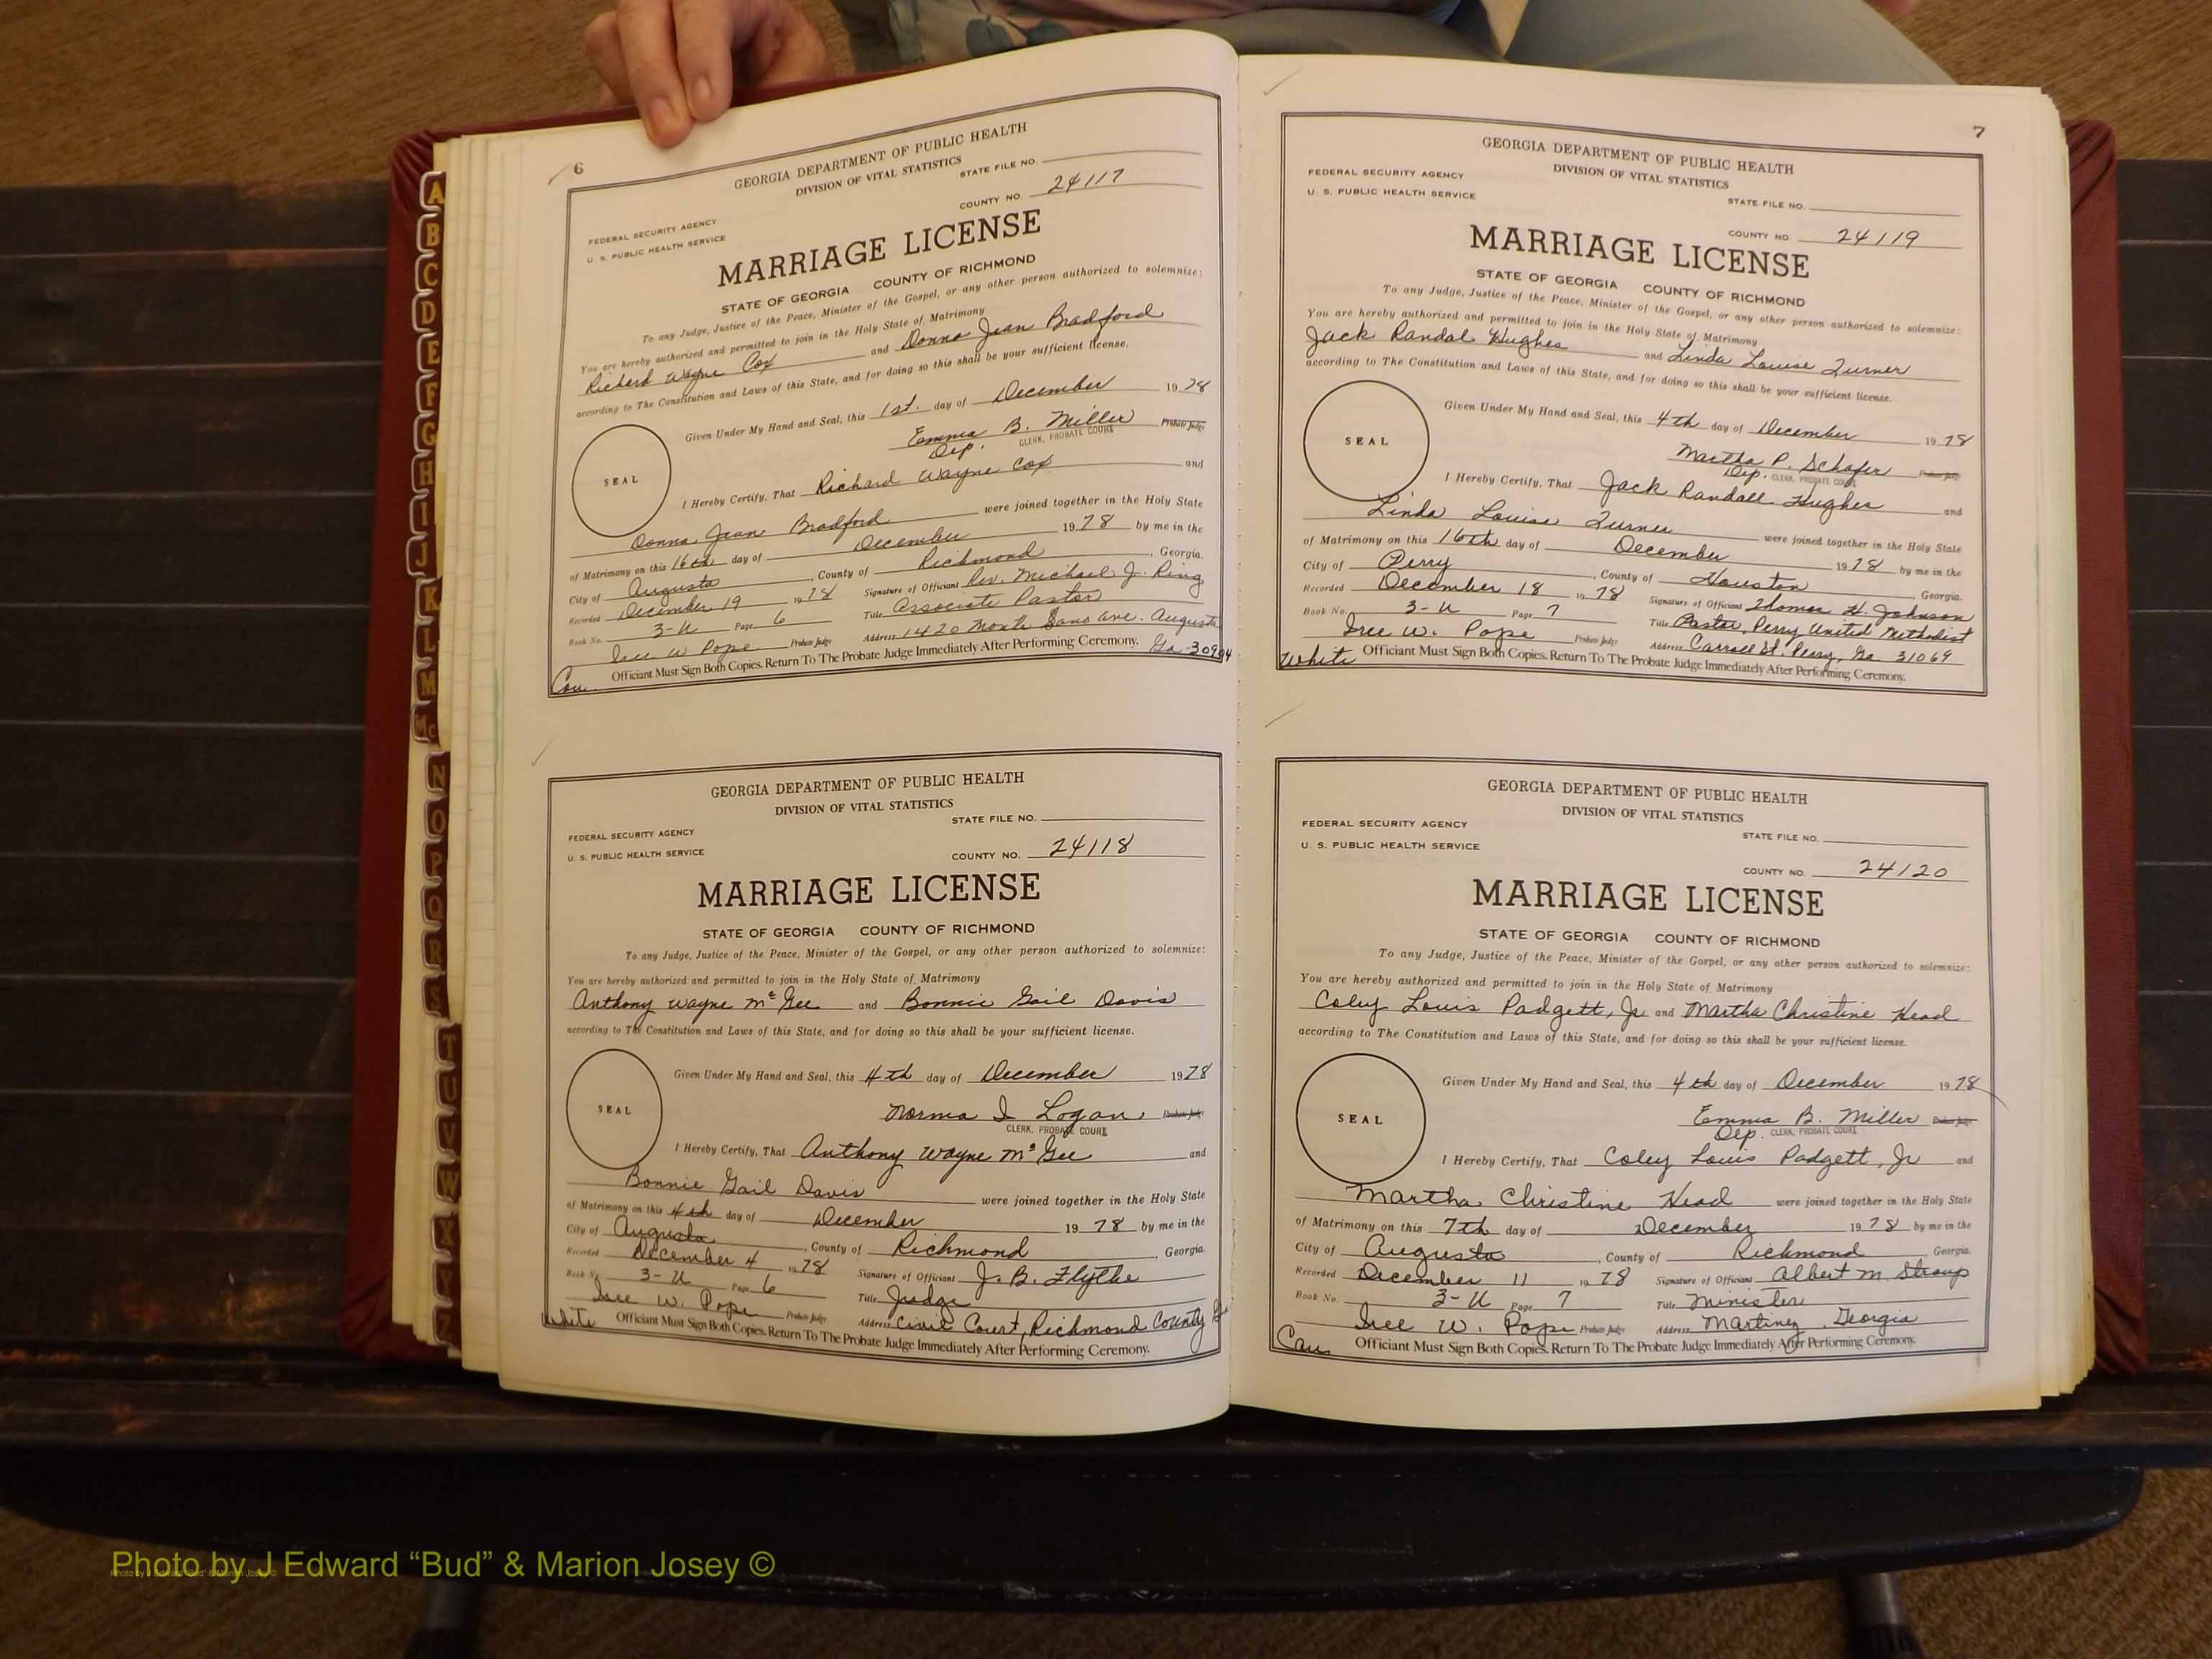 6
GEORGIA DEPARTMENT OF PUBLIC HEALTH
DIVISION OF VITAL STATISTICS
STATE FILE NO.
COUNTY NO. 24117
FEDERAL SECURITY AGENCY
U. S. PUBLIC HEALTH SERVICE
MARRIAGE LICENSE
STATE OF GEORGIA COUNTY OF RICHMOND
To any Judge, Justice of the Peace, Minister of the Gospel, or any other person authorized to solemnize:
You are hereby authorized and permitted to join in the Holy State of Matrimony
Richard Wayne Cox and Donna Jean Bradford
according to The Constitution and Laws of this State, and for doing so this shall be your sufficient license.
Given Under My Hand and Seal, this 1st. day of December 1978
Emma B. Miller Probate Judge
Dep. CLERK, PROBATE COURT
SEAL
I Hereby Certify, That Richard Wayne Cox and
Donna Jean Bradford were joined together in the Holy State
of Matrimony on this 16th day of December 1978 by me in the
City of Augusta, County of Richmond, Georgia.
Recorded December 19 1978 Signature of Officiant Rev. Michael J. Ring
Book No. 3-U Page 6 Title Associate Pastor
Iree W. Pope Probate Judge Address 1420 Monte Sano Ave. Augusta
Ga-30904
Officiant Must Sign Both Copies. Return To The Probate Judge Immediately After Performing Ceremony.
GEORGIA DEPARTMENT OF PUBLIC HEALTH
DIVISION OF VITAL STATISTICS
STATE FILE NO.
FEDERAL SECURITY AGENCY
U. S. PUBLIC HEALTH SERVICE
COUNTY NO. 24118
MARRIAGE LICENSE
STATE OF GEORGIA COUNTY OF RICHMOND
To any Judge, Justice of the Peace, Minister of the Gospel, or any other person authorized to solemnize:
You are hereby authorized and permitted to join in the Holy State of Matrimony
Anthony Wayne McGee and Bonnie Gail Davis
according to The Constitution and Laws of this State, and for doing so this shall be your sufficient license.
Given Under My Hand and Seal, this 4th day of December 1978
Norma I Logan, Probate Judge
CLERK, PROBATE COURT
SEAL
I Hereby Certify, That Anthony Wayne McGee and
Bonnie Gail Davis were joined together in the Holy State
of Matrimony on this 4th day of December 1978 by me in the
City of Augusta, County of Richmond, Georgia.
Recorded December 4 1978 Signature of Officiant J. B. Flythe
Book No. 3-U Page 6 Title Judge
Iree W. Pope Probate Judge Address Civil Court, Richmond County Ga
White Officiant Must Sign Both Copies. Return To The Probate Judge Immediately After Performing Ceremony.
7
GEORGIA DEPARTMENT OF PUBLIC HEALTH
DIVISION OF VITAL STATISTICS
FEDERAL SECURITY AGENCY
U. S. PUBLIC HEALTH SERVICE
STATE FILE NO.
COUNTY NO. 24119
MARRIAGE LICENSE
STATE OF GEORGIA COUNTY OF RICHMOND
To any Judge, Justice of the Peace, Minister of the Gospel, or any other person authorized to solemnize:
You are hereby authorized and permitted to join in the Holy State of Matrimony
Jack Randal Hughes and Linda Louise Turner
according to The Constitution and Laws of this State, and for doing so this shall be your sufficient license.
Given Under My Hand and Seal, this 4th day of December 1978
Martha P. Schafer Probate Judge
Dep. CLERK, PROBATE COURT
SEAL
I Hereby Certify, That Jack Randall Hughes and
Linda Louise Turner were joined together in the Holy State
of Matrimony on this 16th day of December 1978 by me in the
City of Perry, County of Houston Georgia.
Recorded December 18 1978 Signature of Officiant Thomas H. Johnson
Book No. 3-U Page 7 Title Pastor, Perry United Methodist
Iree W. Pope Probate Judge Address Carroll St. Perry, Ga. 31069
White Officiant Must Sign Both Copies. Return To The Probate Judge Immediately After Performing Ceremony.
GEORGIA DEPARTMENT OF PUBLIC HEALTH
DIVISION OF VITAL STATISTICS
FEDERAL SECURITY AGENCY
STATE FILE NO.
U. S. PUBLIC HEALTH SERVICE
COUNTY NO. 24120
MARRIAGE LICENSE
STATE OF GEORGIA COUNTY OF RICHMOND
To any Judge, Justice of the Peace, Minister of the Gospel, or any other person authorized to solemnize:
You are hereby authorized and permitted to join in the Holy State of Matrimony
Coley Louis Padgett, Jr and Martha Christine Head
according to The Constitution and Laws of this State, and for doing so this shall be your sufficient license.
Given Under My Hand and Seal, this 4th day of December 1978
Emma B. Miller Probate Judge
Dep. CLERK, PROBATE COURT
SEAL
I Hereby Certify, That Coley Louis Padgett, Jr and
Martha Christine Head were joined together in the Holy State
of Matrimony on this 7th day of December 1978 by me in the
City of Augusta, County of Richmond Georgia.
Recorded December 11 1978 Signature of Officiant Albert M. Stroup
Book No. 3-U Page 7 Title Minister
Iree W. Pope Probate Judge Address Martinez, Georgia
Officiant Must Sign Both Copies. Return To The Probate Judge Immediately After Performing Ceremony.
A
B
C
D
E
F
G
H
I
J
K
L
M
Mc
N
O
P
Q
R
S
T
U
V
W
X
Y
Z
Photo by J Edward “Bud” & Marion Josey ©
Photo by J Edward “Bud” & Marion Josey ©